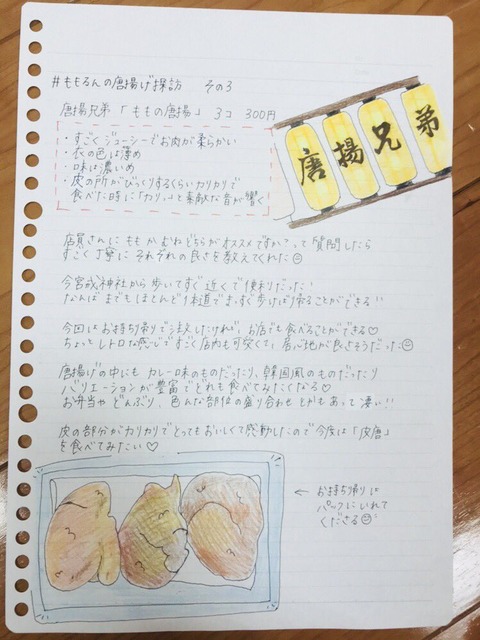 #ももるんの唐揚げ探訪 その3
唐揚兄弟「ももの唐揚」 3コ 300円
・すごくジューシーでお肉が柔らかい
・衣の色は薄め
・味は濃いめ
・皮の所がびっくりするくらいカリカリで
食べた時に「カリッ」と素敵な音が響く
唐揚兄弟
店員さんに ももかむねどちらがオススメですか?って質問したら
すごく丁寧に それぞれの良さを教えてくれた
今宮戎神社から歩いてすぐ近くで便利だった!!
なんばまでもほとんど1本道でまっすぐ歩けば帰ることができる!!
今回はお持ち帰りで注文したけれど、お店でも食べることができる♡
ちょっとレトロな感じですごく店内も可愛くて、居心地が良さそうだった
唐揚げの中にも カレー味のものだったり、韓国風のものだったり
バリエーションが豊富でどれも食べてみたくなる♡
お弁当や どんぶり、色んな部位の盛り合わせ とかもあって凄い!!
皮の部分がカリカリでとってもおいしくて感動したので今度は「皮唐」
を食べてみたい♡
← お持ち帰りは
パックにいれて
くださる